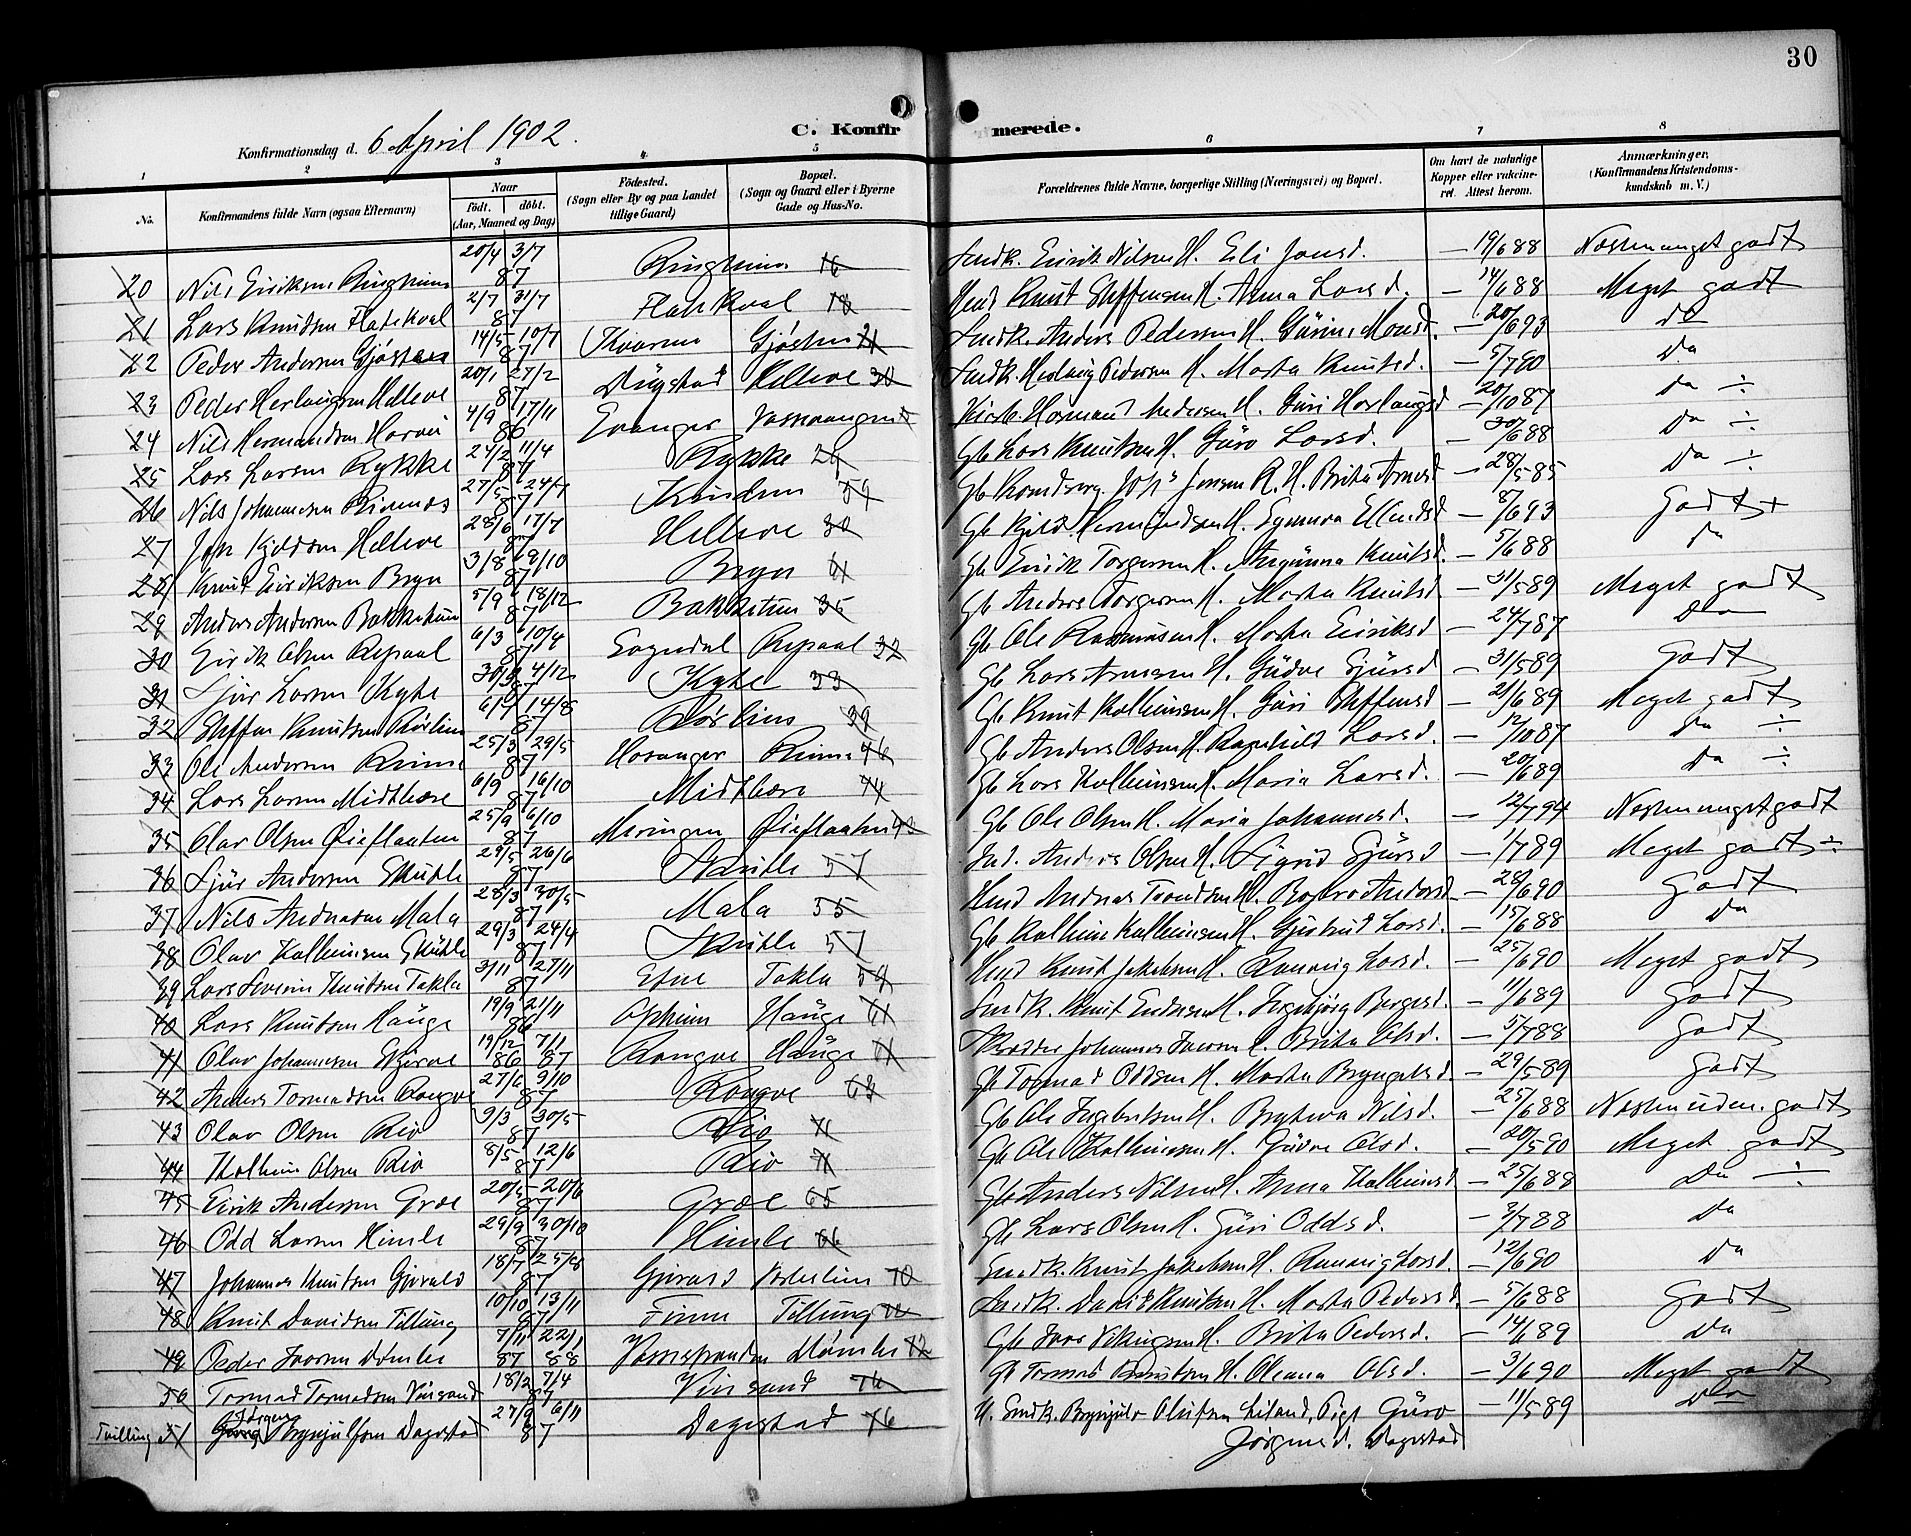 30
Konfirmationsdag d. 6 April 1902.
C. Konfirmerede.
1 2 3 4 5 6 7 8
No.
Konfirmandens fulde Navn (ogsaa Efternavn)
Naar
født. døbt.
(Aar, Maaned og Dag)
Fødested.
(Sogn eller By og paa Landet
tillige Gaard)
Bopæl.
(Sogn og Gaard eller i Byerne
Gade og Hus-No.
Forældrenes fulde Navne, borgerlige Stilling (Næringsvei) og Bopæl.
Om havt de naturlige
Kopper eller vakcine-
ret. Attest herom.
Anmærkninger.
(Konfirmandens Kristendoms-
kundskab m. V.)
20 Nils Eiriksen Ringheim 20/4 3/7 87 Ringheim 16 Smdk. Eirik Nilsen H. Eli Jonsd. — 19/6 88 Næstmeget godt
21 Lars Knudsen Flatekval 2/7 31/7 87 Flatekval 18 Knut Steffensen H. Anna Larsd. — 14/6 88 Meget godt
22 Peder Andersen Gjøstein 14/5 10/7 87 Gjøstein 21 Smdk. Anders Pedersen H. Monsd. — 20/6 93 do
23 Peder Herlaugsen Helleve 20/1 27/2 87 Dugstad Helleve 30 Smdk. Herlaug Pedersen H. Marta Knutsd. — 5/7 90 Do
24 Nils Hermundsen Horvei 4/9 17/11 86 Evanger Vossevangen Hermund Andersen H. Guri Herlaugsd — 20/10 87 do ÷
25 Lars Larsen Rykke 24/2 11/4 87 Rykke 26 Gb Lars Knutsen H. Guro Larsd. — 30/6 88 Do ÷
26 Nils Johannesen Rivenes 27/5 24/7 87 59 Gb Jensen R. H. Brita Arnesd — 28/5 85 Do ÷
27 Jon Kjeldsen Helleve 28/6 17/7 87 Helleve 30 Gb Kjeld Hermundsen H. Ellendsd — 8/6 93 Godt +
28 Knut Eiriksen Bryn 3/8 9/10 87 Bryn 61 Gb Eirik Torgersen H. Knutsd. — 5/6 88 Do
29 Anders Andersen Bakketun 5/9 18/12 87 Bakketun 35 Gb Anders Torgersen H. Marta Knutsd — 31/5 89 Meget godt
30 Eirik Olsen Repaal 6/3 10/4 87 Sogndal Repaal 32 Gb Ole Rasmussen H. Marta Eiriksd — 24/7 87 Do
31 Sjur Larsen Kyte 4/12 87 Kyte 33 Gb Lars Arnesen H. Gudve Sjursd — 31/5 89 Godt
32 Steffen Knutsen Rørlien 6/7 14/8 87 Rørlien 39 Gb Knut Kolbeinsen H. Guri Steffensd — 21/6 89 Meget godt
33 Ole Andersen Rinne 25/3 29/5 87 Hosanger Rinne 46 Gb Anders Olsen H. Ragnhild Larsd. — 12/10 87 Do ÷
34 Lars Larsen Midtbære 6/9 16/10 87 Midtbære 44 Gb Lars Kolbeinsen H. Maria Larsd. — 20/6 89 Do ÷
35 Olav Olsen Øieflaaten 25/9 6/10 87 Øieflaaten 42 Gb Ole Olsen H. Maria Johannesd. — 12/7 94 Næstmegetgodt
36 Sjur Andersen Skutle 29/5 26/6 87 Skutle 57 Anders Olsen H. Sigrid Sjursd — 1/7 89 Meget godt ÷
37 Nils Andreasen Mala 28/3 30/5 87 Mala 55 Andreas Trondsen H. Andersd — 28/6 90 Godt
38 Olav Kolbeinsen Skutle 29/3 24/4 87 Skutle 57 Gb Kolbein Kolbeinsen H. Gjertrud Larsd. — 15/6 88 Do
39 Lars Severin Knutsen Takla 3/11 27/11 87 Etne Takla 59 Knut Jakobsen H. Rannveig Larsd. — 25/6 90 Meget godt
40 Lars Knutsen Hauge 19/9 21/11 86 Opheim Hauge 61 Smdk. Knut Endresen H. Ingebjørg Bergesd. — 11/6 89 Godt
41 Olav Johannesen Skjerve 19/12 86 7/1 87 Rongve Hauge 61 Skrædder Johannes Iversen H. Brita Olsd. — 5/7 88 Godt
42 Anders Tormodsen Rongve 27/6 9/10 87 Rongve 63 Gb Tormod Oddsen H. Marta Bryngelsd. — 29/5 89 Godt
43 Olav Olsen Riv 9/3 30/5 87 Riv 71 Gb Ole Ingebrigtsen H. Brytteva Nilsd. — 25/6 88
44 Kolbein Olsen Riv 8/5 12/6 87 Riv 71 Gb Ole Kolbeinsen H. Gudve Olsd. — 20/5 90 Meget godt
45 Eirik Andersen Græe 20/5 20/6 87 Græe 65 Gb Anders Nilsen H. Anna Kolbeinsd — 25/6 88 Do ÷
46 Odd Larsen Himle 29/9 30/10 87 Himle 66 Gb Lars Olsen H. Guri Oddsd. — 2/7 88 Do
47 Johannes Knutsen Gjerald 18/7 25/8 87 Gjerald 70 Smdk. Knut Jakobsen H. Rannveig Larsd. — 12/6 90 Do
48 Knut Davidsen Tillung 10/10 13/11 87 Finne Tillung Smdk. David Knutsen H. Marta Pedersd. — 5/6 88 Godt
49 Peder Iversen Mømle 7/11 87 22/1 88 Vossestranden Mømle 72 Gb Iver Vikingsen H. Brita Pedersd. — 14/6 89 Do
50 Tormod Tormodsen Vinsand 18/2 7/4 87 Vinsand 76 Gb Tormod Knutsen H. Oleana Olsd. — 3/6 90 Meget godt
Tvilling 51 Jørgen Brynjulfsen Dagestad 27/9 6/11 87 Dagestad 76 U. Smdk. Brynjulv Olsen Leiland, Pige Guro — 11/5 89 Do
Jørgensd. Dagestad